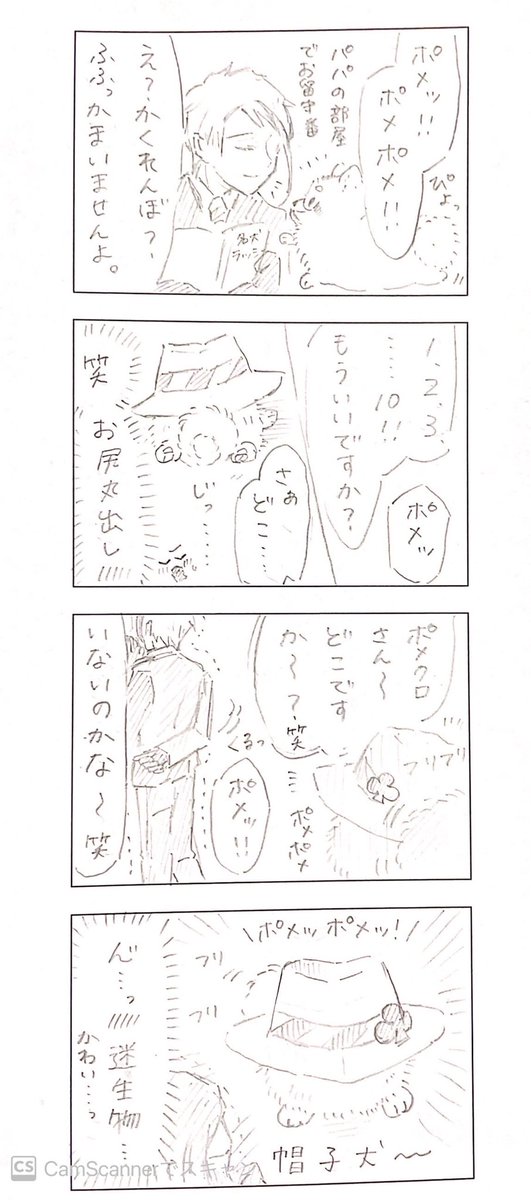 ポメッ!!
ポメポメ!!
ぴょっ
パパの部屋
でお留守番
名犬
ラッシー
え?、かくれんぼ?、
ふふっかまいませんよ。
1、2、3、
……10!!
もういいですか?
ポメッ
さぁ
どこ…〜
じっ……
笑
お尻丸出し
ポメクロ
さん〜
どこです
か〜?笑
フリフリ
ポメポメ
くるっ
ポメッ!!
いないのかな〜笑
\ポメッポメッ!/
フリ
フリ
ん"…っ
迷生物…
かわい…っ
帽子犬〜
CS CamScannerでスキャン